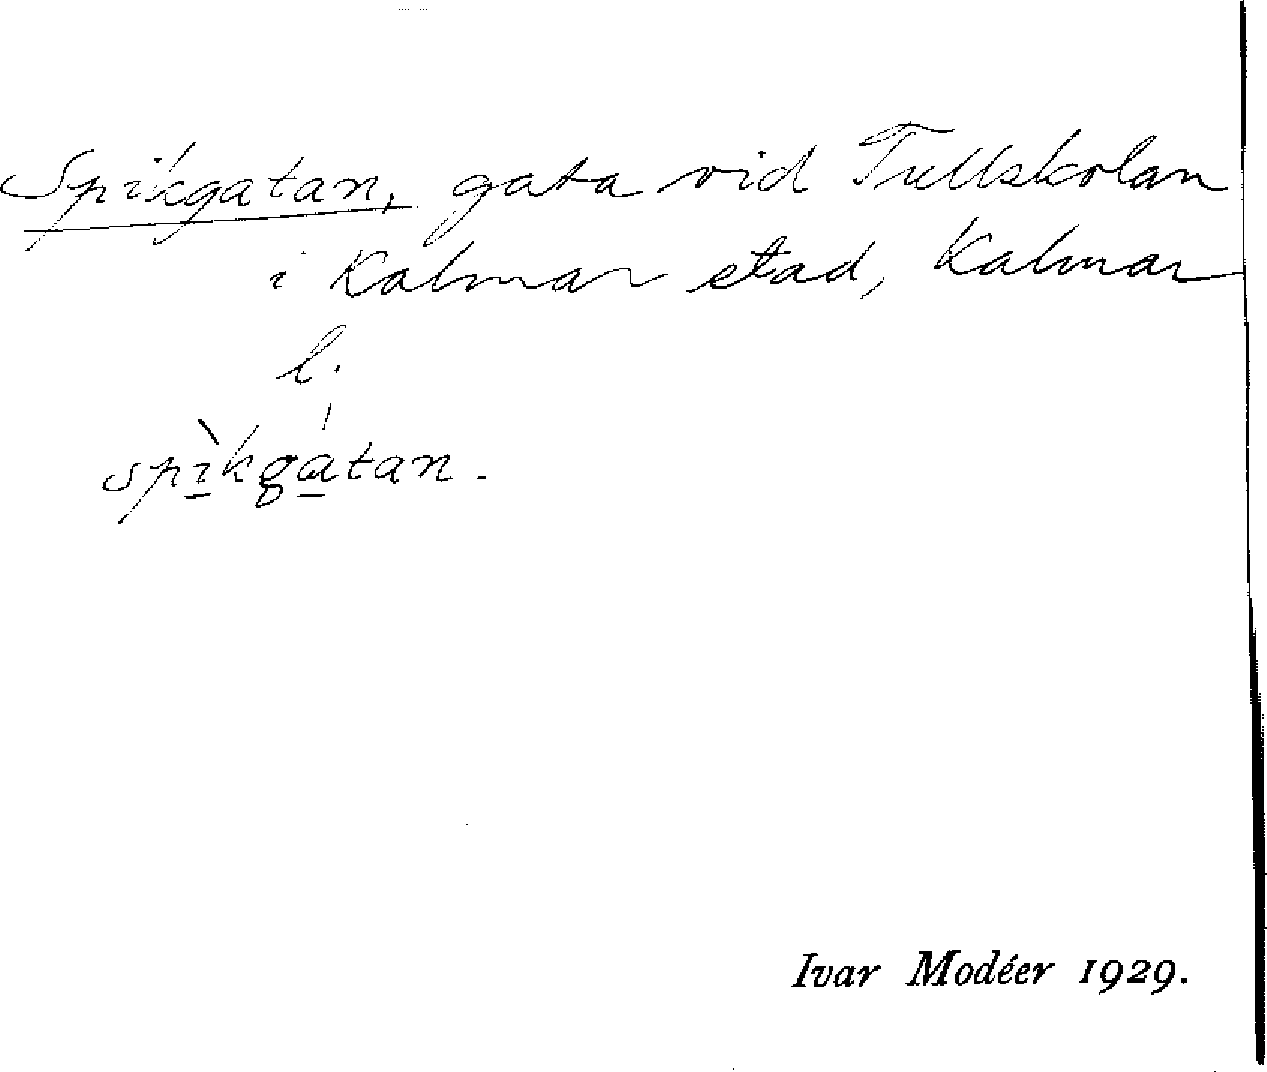 Spikgatan, gata vid Tullskolan
i Kalmar stad, Kalmar
l.
spì̲kgá̲tan.
Ivar Modéer 1929.